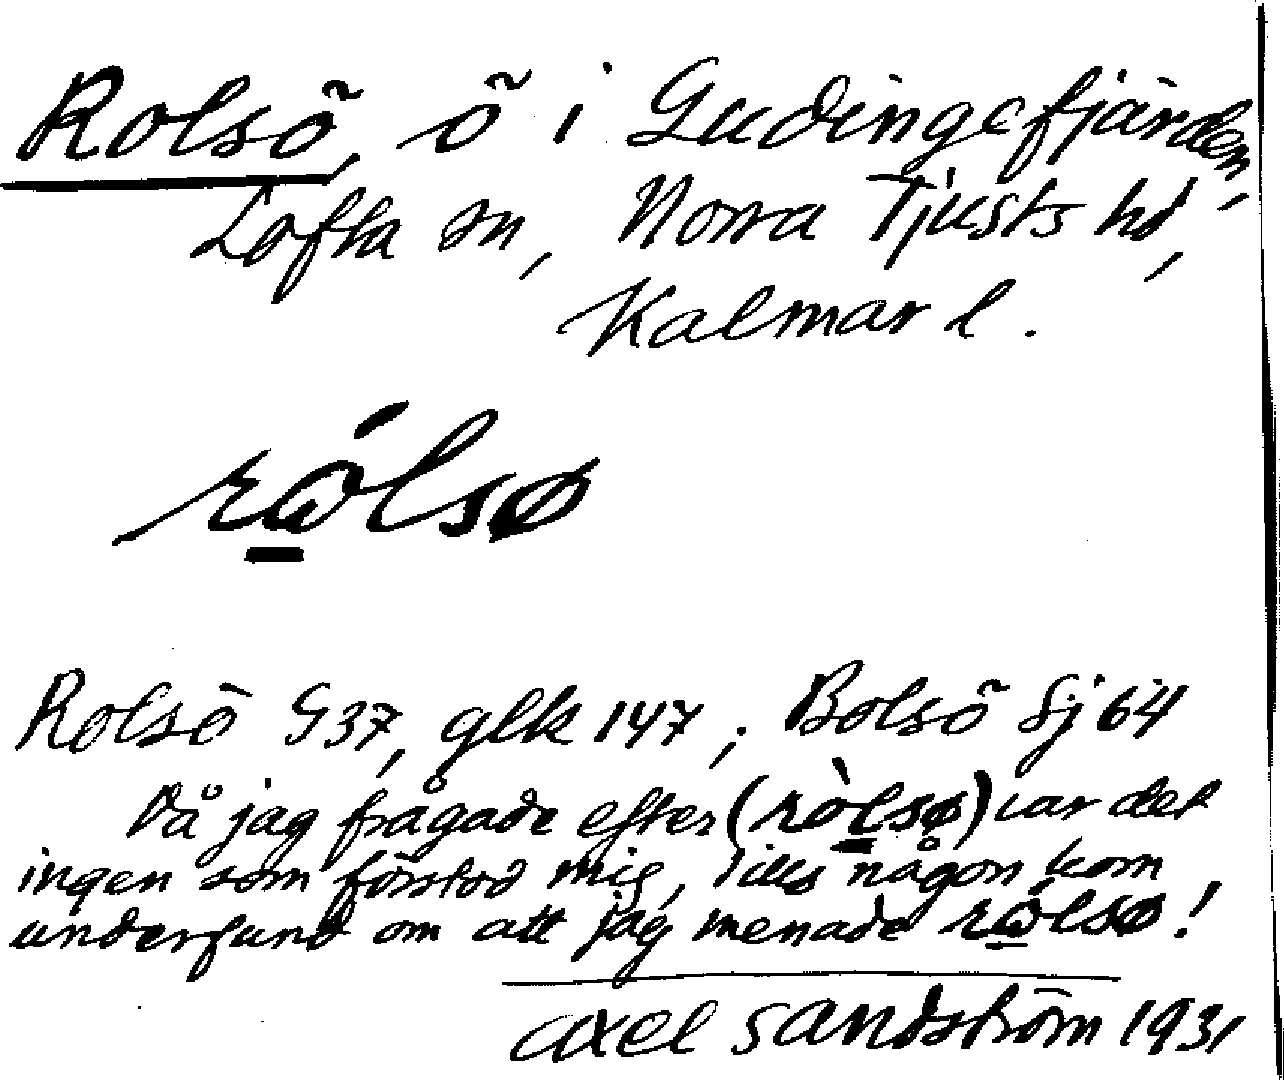 Rolsö, ö i Gudingefjärden,
Lofta sn, Norra Tjusts hd,
Kalmar l.
rώ̲lsø
Rolsö G37, glk 147; Bolsö Sj 64
Då jag frågade efter (rò̲lsø) var det
ingen som förstod mig, tills någon kom
underfund om att jag menade rώ̲lsø!
Axel Sandström 1931